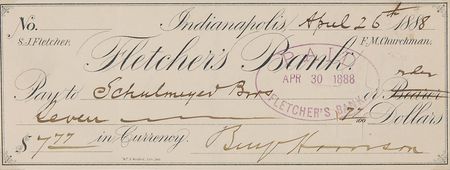 No. Indianapolis, April 26th 1888
S.J. Fletcher. F.M. Churchman.
Fletcher's Bank.
PAID
APR 30 1888
FLETCHER'S BANK
order
Pay to Schulmeyer Bros or Bearer
Seven 77/100 Dollars
$7 77 in Currency. Benj Harrison